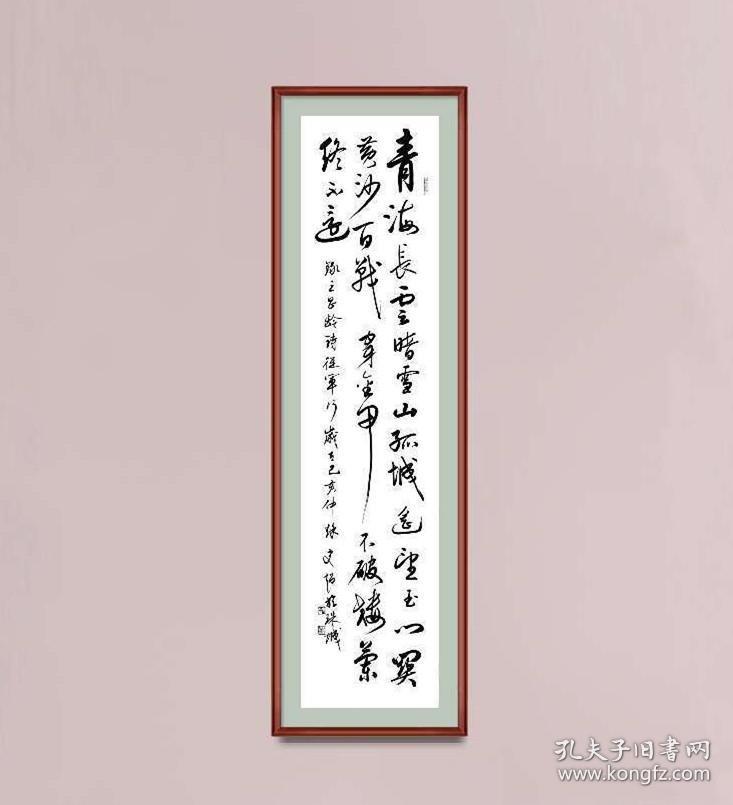 青海長雲暗雪山孤城遥望玉門関
黄沙百戰穿金甲不破楼蘭
終不還
錄王昌龄詩從軍行歲在己亥仲
於珠城
孔夫子旧书网
www.kongfz.com